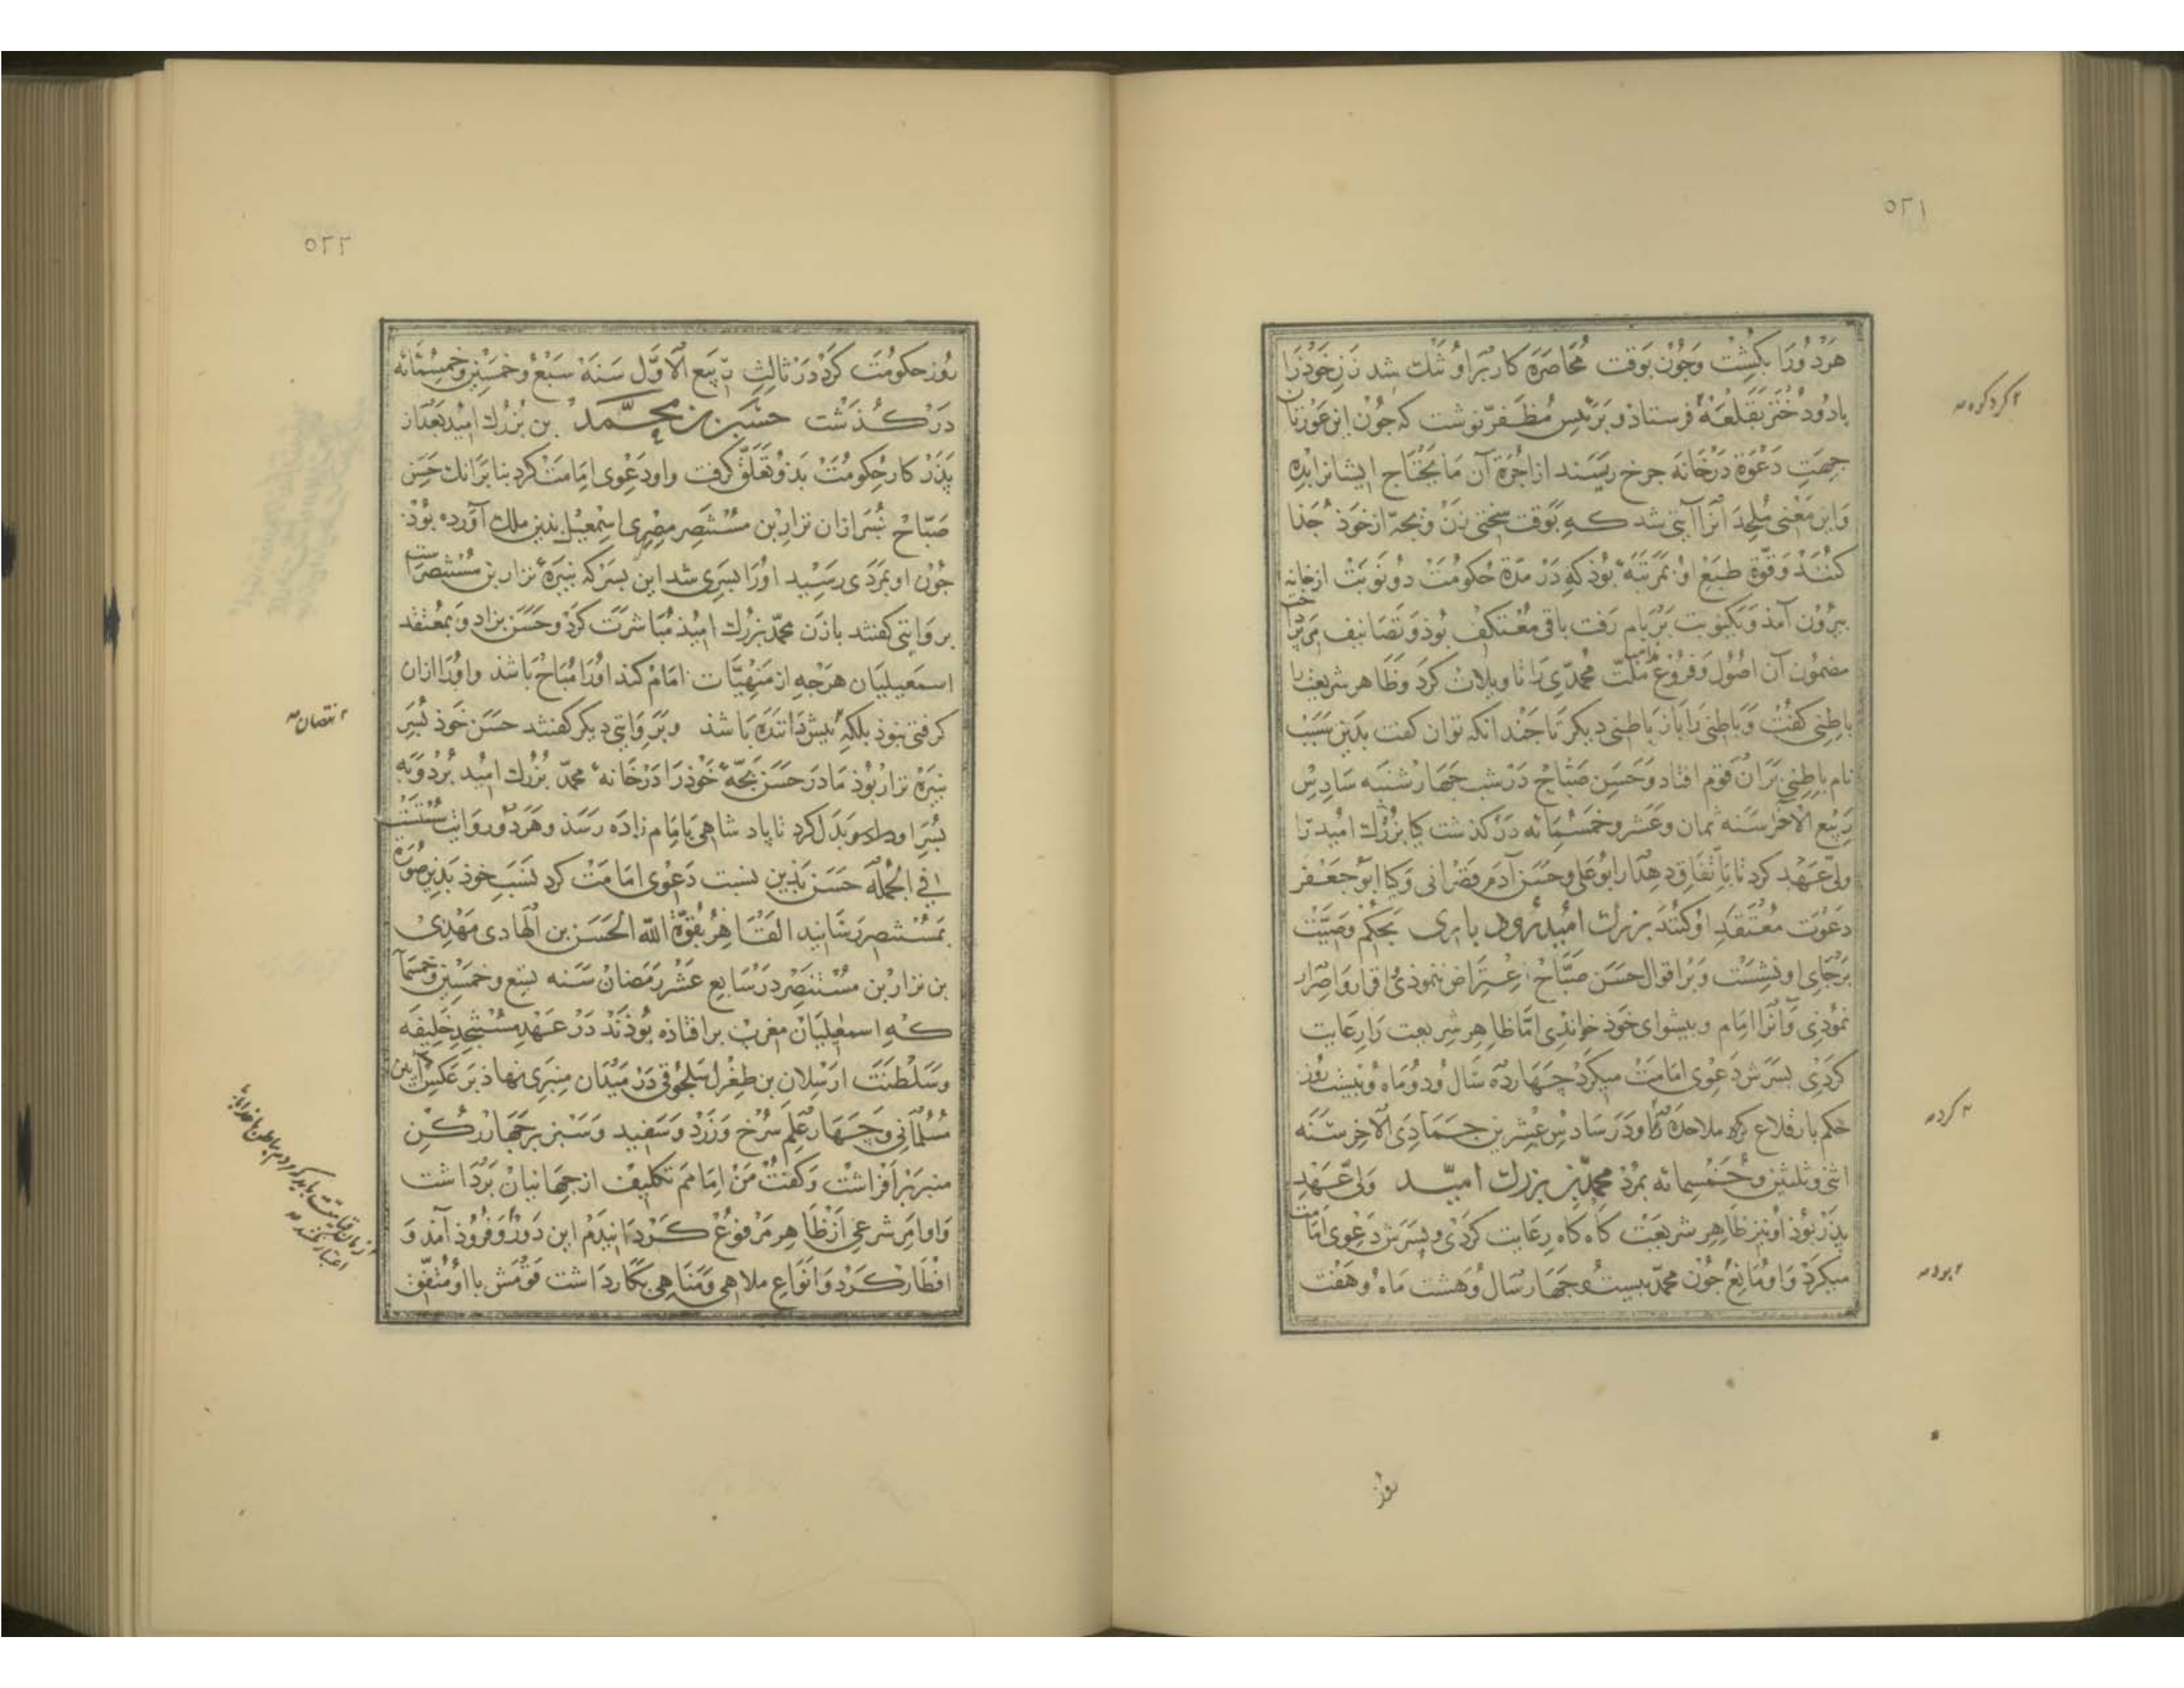 ٥٢١
هردو را بکشت و جون بوقت محاصره کار بر او تنك شد زن خوذ را
با دو دختر بقلعه فرستاذ و بر رئیس مظفر نوشت که جون این عورتان
جهت دعوة درخانه جرخ ریسند از اجرة آن ما یحتاج ایشانرا بده
و این معنی ملحد انرا آیتی شد که بوقت سختی زن و بجه از خوذ جذا
کنند و قوة طبع او بمرتبه بوذ که در مدة حکومت دو نوبت از خانه
بیرون آمذ و یکنوبت بر بام رفت باقی معتکف بوذ و تصانیف می پرداخت
مضمون آن اصول و فروع ملت محمدی را تاویلات کرد و ظاهر شریعت را
باطنی کفت و باطنی را باز باطنی دیکر تا جندانکه توان کفت بدین سبب
نام باطنی بران قوم افتاد و حسن صباح در شب جهارشنبه سادس
ربیع الآخر سنه ثمان و عشر و خمسمائه در کذشت کیا بزرك امید را
ولی عهد کرد تا باتفاق دهدار ابو علی و حسن آدم قصرانی و کیا ابو جعفر
دعوت معتقد او کنند بزرك امید بحکم وصیت
بر جای او نشست و بر اقوال حسن صباح اعتراض ننموذی اقرار و اصرار
نموذی و آنرا امام و بیشوای خوذ خواندی اما ظاهر شریعت را رعایت
کردی بسرش دعوی امامت میکرد چهارده سال و دو ماه و بیست روز
حکم بار قلاع کره ملاحده را و در سادس عشرین جمادی الآخر سنه
اثنی و ثلثین و خمسمائه بمرذ محمد بن بزرك امید ولی عهد
بذر بوذ او نیز ظاهر شریعت کاه کاه رعایت کردی و بسرش دعوی امامت
میکرد و او مانع جون محمد بیست و جهار سال و هشت ماه و هفت
کرده
بود
روز
٥٢٢
روز حکومت کرد در ثالث ربیع الاول سنه سبع و خمسین و خمسمائه
در کذشت حسن بن محمد بن بزرك امید بعد از
بذر کار حکومت بذو تعلق کرفت و او دعوی امامت کرد بنا بر انك حسن
صباح بسر ازان نزار بن مستنصر مصری اسمعیل بذین ملك آورده بوذ
جون او بمردی رسید اورا بسری شد این بسر که نبیره نزار بن مستنصر است
بروایتی کفتند با زن محمد بزرك امیذ مباشرت کرد و حسن بزاد و بمعتقد
اسمعیلیان هرجه از منهیات امام کند اورا مباح باشذ و اورا ازان
کرفتی نبوذ بلکه بیش داننده باشذ و بر وایتی دیکر کفتند حسن خوذ بسر
نبیره نزار بوذ مادر حسن بجه خوذرا در خانه محمد بزرك امید برد و به
بسر او بدل کرد تا پاد شاهی بامام زاده رسذ و هردو روایت
فی الجمله حسن بذین نسبت دعوی امامت کرد نسب خوذ بذین صورة
بمستنصر رسانید القاهر بقوة الله الحسن بن الهادی مهدی
بن نزار بن مستنصر در سابع عشر رمضان سنه تسع و خمسین و خمسمآ
که اسمعیلیان مغرب بر افتاذه بوذند در عهد مستنجد خلیفه
و سلطنت ارسلان بن طغرل سلجوقی در میدان منبری نهاذ بر عکس آیین
مسلمانی و چهار علم سرخ و زرد و سفید و سبز بر جهار رکن
منبر بر افراشت و کفت من امامم تکلیف از جهانیان برداشت
و اوامر شرعی از ظاهر مرفوع کردانیدم این دور و فروذ آمذ و
افطار کرد و انواع ملاهی و مناهی بکار داشت قومش با او متفق
نقصان